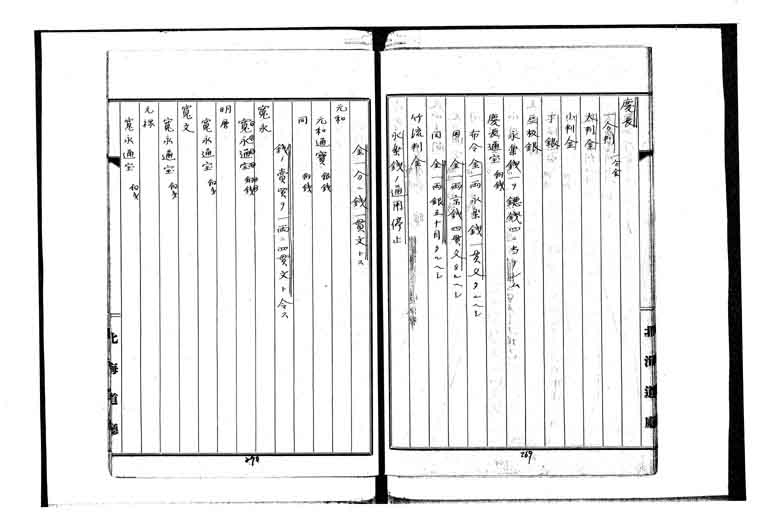 慶長
一分判 一分金
大判金
小判金
丁銀
豆板銀
永楽銭一ヲ鐚銭四ニ当ラシム
慶長通宝 銅銭
布令金一両永楽銭一貫文タルヘシ
同 金一両京銭四貫文タルヘシ
同 金一両銀五十目タルヘシ
竹流判金
永楽銭ノ通用停止
北海道廳
269
金一分ニ銭一貫文トス
元和
元和通寳 銀銭
同 銅銭
銭ノ賣買ヲ一両ニ四貫文ト令ス
寛永
寛永通宝
明暦
寛永通宝 銅銭
寛文
寛永通宝 銅銭
元禄
寛永通宝 銅銭
北海道廳
270